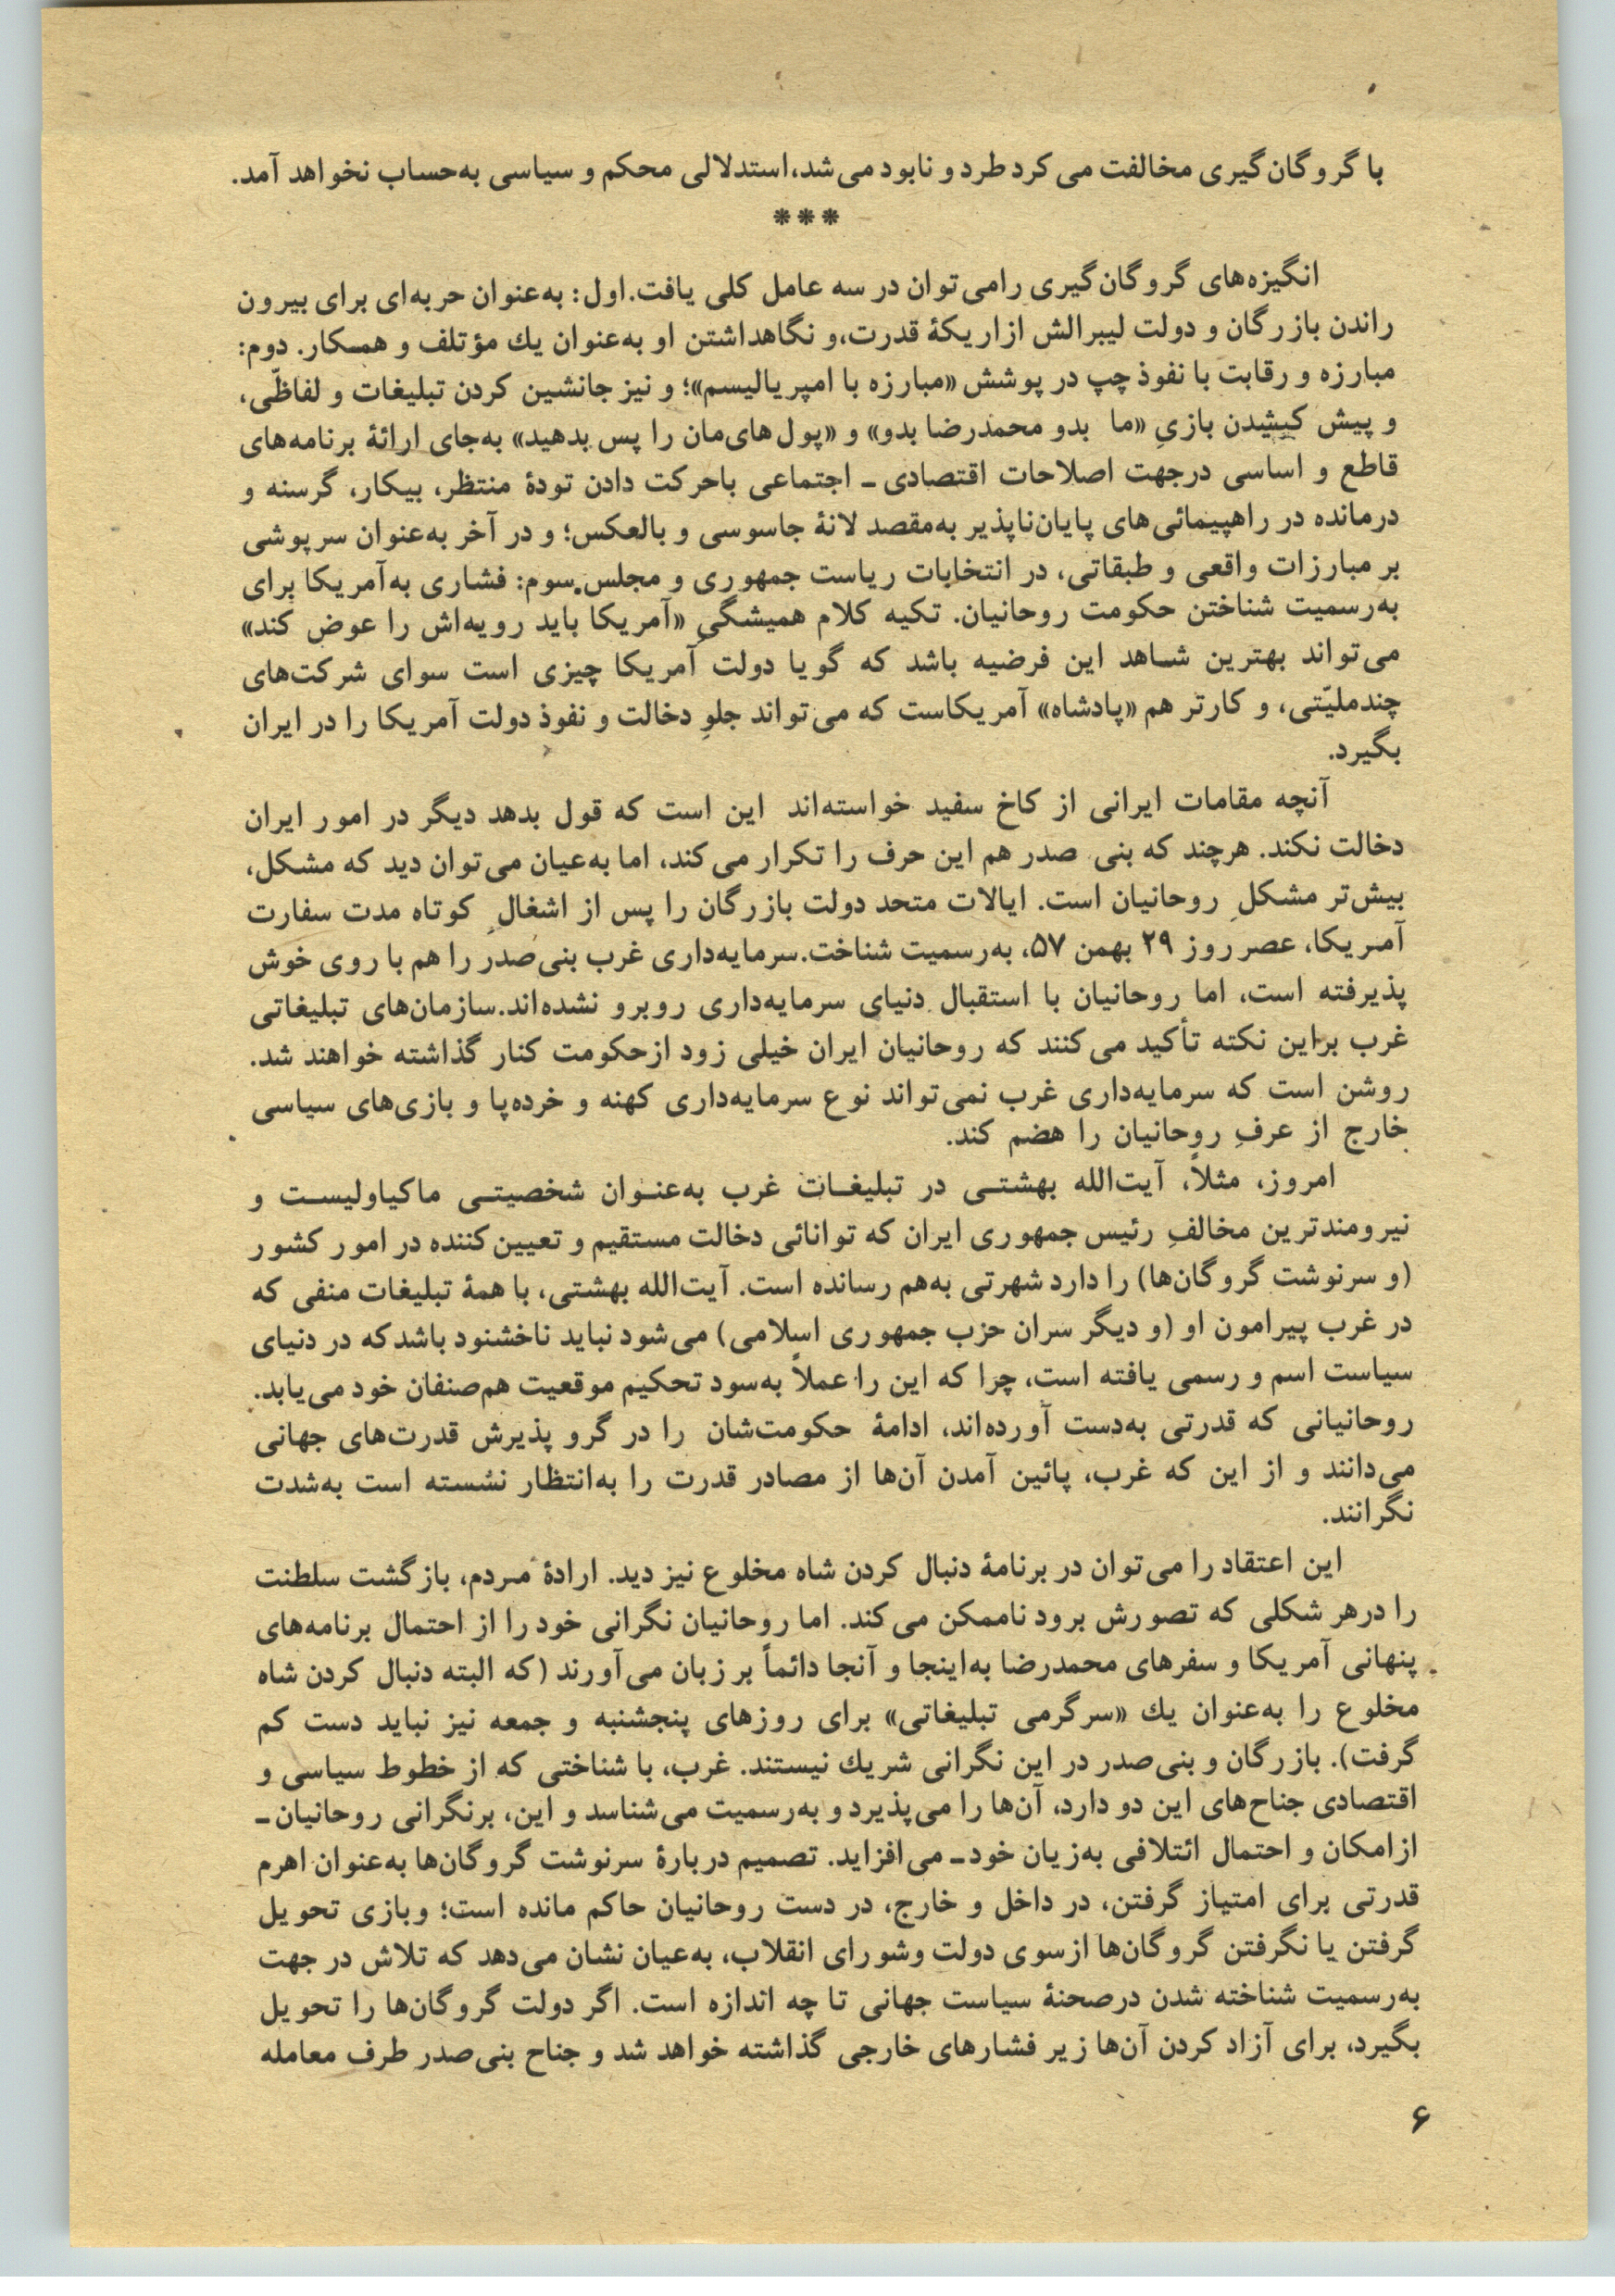 با گروگان‌گیری مخالفت می‌کرد طرد و نابود می‌شد، استدلالی محکم و سیاسی به‌حساب نخواهد آمد.
* * *
انگیزه‌های گروگان‌گیری را می‌توان در سه عامل کلی یافت. اول: به‌عنوان حربه‌ای برای بیرون
راندن بازرگان و دولت لیبرالش از اریکهٔ قدرت، و نگاهداشتن او به‌عنوان یك مؤتلف و همکار. دوم:
مبارزه و رقابت با نفوذ چپ در پوشش «مبارزه با امپریالیسم»؛ و نیز جانشین کردن تبلیغات و لفاظّی،
و پیش کشیدن بازیِ «ما بدو محمدرضا بدو» و «پول‌های‌مان را پس بدهید» به‌جای ارائهٔ برنامه‌های
قاطع و اساسی درجهت اصلاحات اقتصادی ـ اجتماعی باحرکت دادن تودهٔ منتظر، بیکار، گرسنه و
درمانده در راهپیمائی‌های پایان‌ناپذیر به‌مقصد لانهٔ جاسوسی و بالعکس؛ و در آخر به‌عنوان سرپوشی
بر مبارزات واقعی و طبقاتی، در انتخابات ریاست جمهوری و مجلس. سوم: فشاری به‌آمریکا برای
به‌رسمیت شناختن حکومت روحانیان. تکیه کلام همیشگیِ «آمریکا باید رویه‌اش را عوض کند»
می‌تواند بهترین شاهد این فرضیه باشد که گویا دولت آمریکا چیزی است سوای شرکت‌های
چندملیّتی، و کارتر هم «پادشاه» آمریکاست که می‌تواند جلوِ دخالت و نفوذ دولت آمریکا را در ایران
بگیرد.
آنچه مقامات ایرانی از کاخ سفید خواسته‌اند این است که قول بدهد دیگر در امور ایران
دخالت نکند. هرچند که بنی صدر هم این حرف را تکرار می‌کند، اما به‌عیان می‌توان دید که مشکل،
بیش‌تر مشکلِ روحانیان است. ایالات متحد دولت بازرگان را پس از اشغالِ کوتاه مدت سفارت
آمریکا، عصر روز ۲۹ بهمن ۵۷، به‌رسمیت شناخت. سرمایه‌داری غرب بنی‌صدر را هم با روی خوش
پذیرفته است، اما روحانیان با استقبال دنیای سرمایه‌داری روبرو نشده‌اند. سازمان‌های تبلیغاتی
غرب براین نکته تأکید می‌کنند که روحانیان ایران خیلی زود ازحکومت کنار گذاشته خواهند شد.
روشن است که سرمایه‌داری غرب نمی‌تواند نوع سرمایه‌داری کهنه و خرده‌پا و بازی‌های سیاسی
خارج از عرفِ روحانیان را هضم کند.
امروز، مثلاً، آیت‌الله بهشتی در تبلیغات غرب به‌عنوان شخصیتی ماکیاولیست و
نیرومندترین مخالفِ رئیس جمهوری ایران که توانائی دخالت مستقیم و تعیین‌کننده در امور کشور
(و سرنوشت گروگان‌ها) را دارد شهرتی به‌هم رسانده است. آیت‌الله بهشتی، با همهٔ تبلیغات منفی که
در غرب پیرامون او (و دیگر سران حزب جمهوری اسلامی) می‌شود نباید ناخشنود باشد که در دنیای
سیاست اسم و رسمی یافته است، چرا که این را عملاً به‌سود تحکیم موقعیت هم‌صنفان خود می‌یابد.
روحانیانی که قدرتی به‌دست آورده‌اند، ادامهٔ حکومت‌شان را در گرو پذیرش قدرت‌های جهانی
می‌دانند و از این که غرب، پائین آمدن آن‌ها از مصادر قدرت را به‌انتظار نشسته است به‌شدت
نگرانند.
این اعتقاد را می‌توان در برنامهٔ دنبال کردن شاه مخلوع نیز دید. ارادهٔ مردم، بازگشت سلطنت
را درهر شکلی که تصورش برود ناممکن می‌کند. اما روحانیان نگرانی خود را از احتمال برنامه‌های
پنهانی آمریکا و سفرهای محمدرضا به‌اینجا و آنجا دائماً بر زبان می‌آورند (که البته دنبال کردن شاه
مخلوع را به‌عنوان یك «سرگرمی تبلیغاتی» برای روزهای پنجشنبه و جمعه نیز نباید دست کم
گرفت). بازرگان و بنی‌صدر در این نگرانی شریك نیستند. غرب، با شناختی که از خطوط سیاسی و
اقتصادی جناح‌های این دو دارد، آن‌ها را می‌پذیرد و به‌رسمیت می‌شناسد و این، برنگرانی روحانیان ـ
ازامکان و احتمال ائتلافی به‌زیان خود ـ می‌افزاید. تصمیم دربارهٔ سرنوشت گروگان‌ها به‌عنوان اهرم
قدرتی برای امتیاز گرفتن، در داخل و خارج، در دست روحانیان حاکم مانده است؛ وبازی تحویل
گرفتن یا نگرفتن گروگان‌ها ازسوی دولت وشورای انقلاب، به‌عیان نشان می‌دهد که تلاش در جهت
به‌رسمیت شناخته شدن درصحنهٔ سیاست جهانی تا چه اندازه است. اگر دولت گروگان‌ها را تحویل
بگیرد، برای آزاد کردن آن‌ها زیر فشارهای خارجی گذاشته خواهد شد و جناح بنی‌صدر طرف معامله
۶